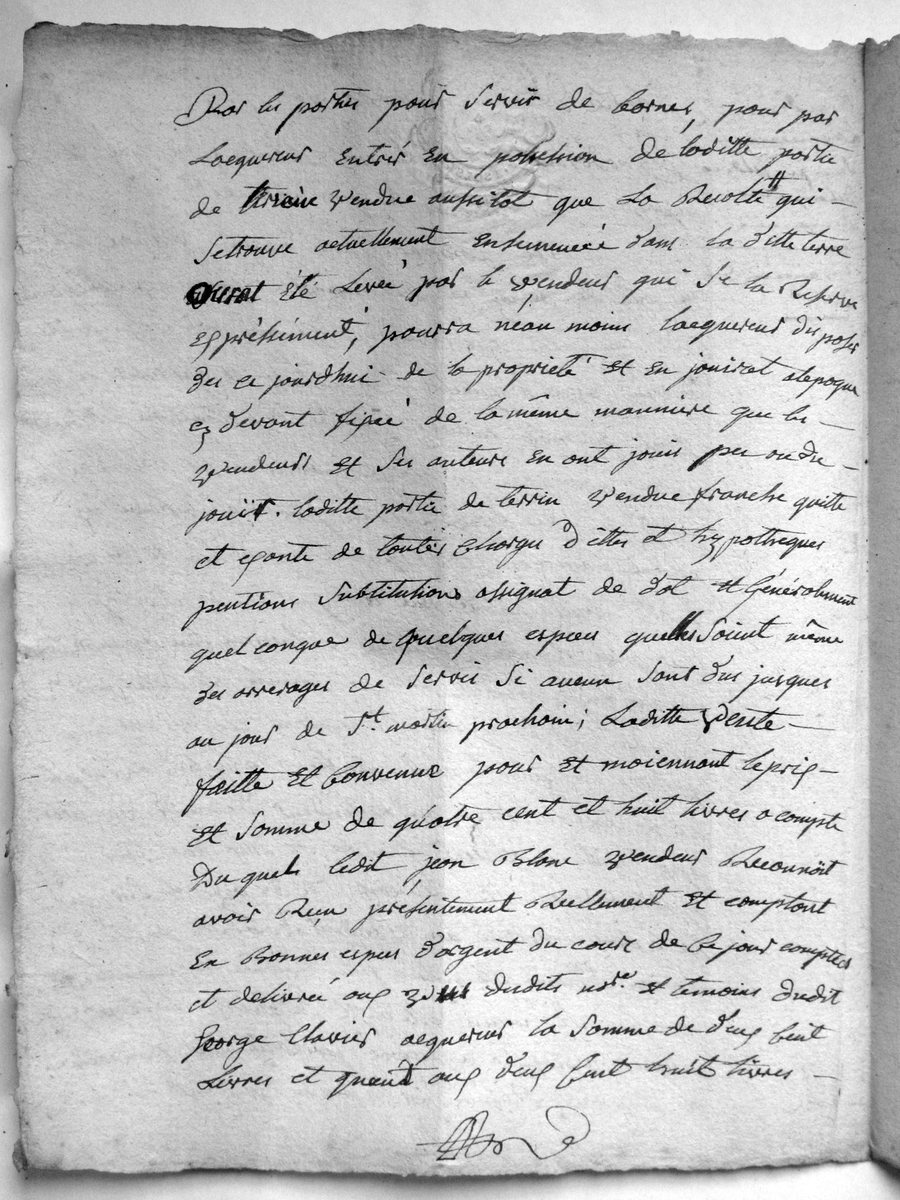 Par les parties pour Servir de bornes, pour par
Lacquereur Entrer En possession de laditte partie
de terrein vendue aussitot que La Recolte qui
Setrouve actuellement Ensemencéé dans la ditte terre
aurat Eté Levéé par le vendeur qui Se la Reserve
expressément, pourra néan moins lacquereur disposer
des ce jourdhui de la proprieté Et En jouirat alepoque
cy devant fixéé de la même manniere que les
vendeurs Et Ses auteurs En ont jouis peu ou du
jouir. laditte partie de terrin vendue franche quitte
et exante de toutes Charges dettes et hypotheques
pentions Substitutions assignat de dot Et Généralement
quel conque de quelques especes quelles Soint même
des arrerages de Servis Si aucun Sont dus jusques
au jour de St. martin prochain; Laditte vente
faitte Et Convenue pour Et moiennant le prix
Et Somme de quatre cent et huit livres a compte
Du quels ledit jean Blanc vendeur Reconnoit
avoir Reçu présentement Réellement Et comptant
En Bonnes especes d'argent du cours de Ce jour comptés
et delivréé aux dudits nore. Et temoins dudit
George Clavier acquereur la Somme de deux Cent
Livres et quand aux deux Cent huit livres